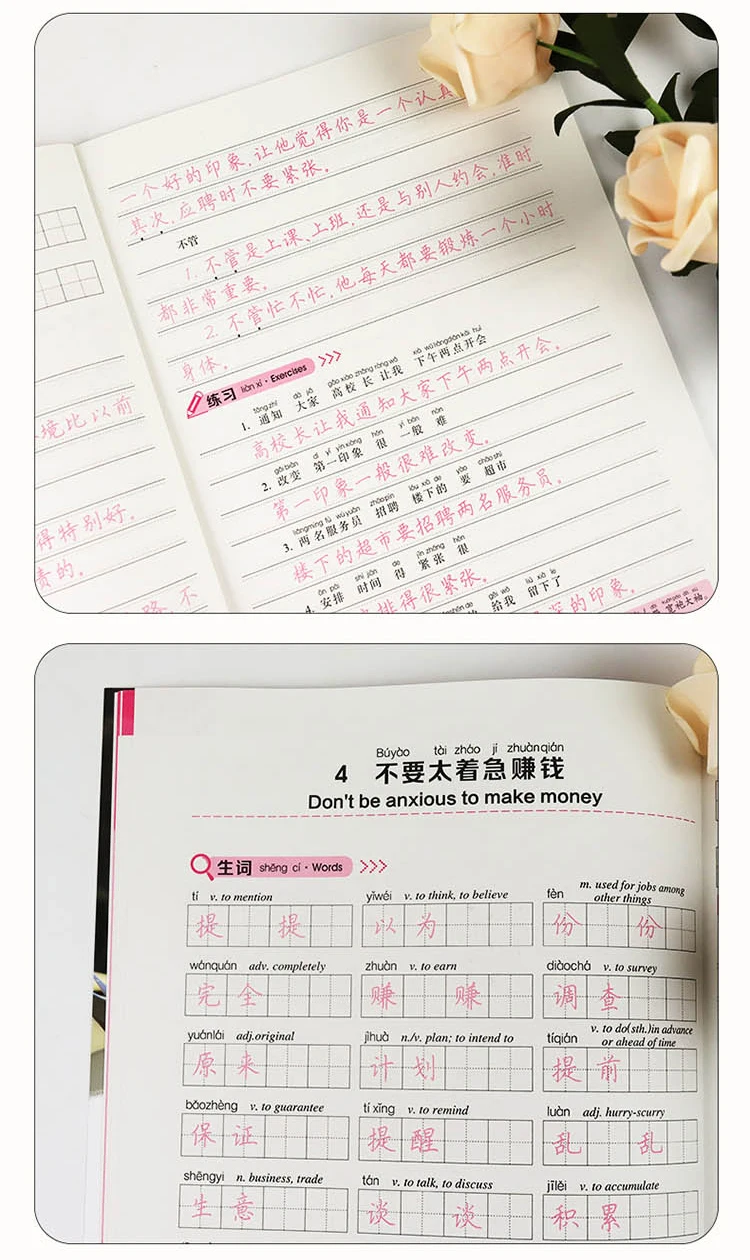 一个好的印象,让他觉得你是一个认真
其次,应聘时不要紧张。
不管
1. 不管是上课,上班,还是与别人约会,准时
都非常重要。
2. 不管忙不忙,他每天都要锻炼一个小时
身体。
练习 liàn xí · Exercises
tōngzhī dà jiā gāo xiào zhǎng ràng wǒ xià wǔ liǎng diǎn kāi huì
1. 通知 大家 高校长 让我 下午两点开会
高校长让我通知大家下午两点开会。
gǎi biàn dì yī yìn xiàng hěn yì bān nán
2. 改变 第一印象 很 一般 难
第一印象一般很难改变。
liǎng míng fú wù yuán zhāopìn lóu xià de yào chāo shì
3. 两名服务员 招聘 楼下的 要 超市
楼下的超市要招聘两名服务员。
ān pái shí jiān de jǐn zhāng hěn
4. 安排 时间 得 紧张 很
排得很紧张。
gěi wǒ liú xià le
给我 留下了
深的印象。
境比以前
得特别好。
责的。
路,不
Búyào tài zháo jí zhuànqián
4 不要太着急赚钱
Don't be anxious to make money
生词 shēng cí · Words
tí v. to mention
提 提
yǐwéi v. to think, to believe
以为
fèn m. used for jobs among other things
份 份
wánquán adv. completely
完全
zhuàn v. to earn
赚 赚
diàochá v. to survey
调查
yuánlái adj.original
原来
jìhuà n./v. plan; to intend to
计划
tíqián v. to do(sth.)in advance or ahead of time
提前
bǎozhèng v. to guarantee
保证
tí xǐng v. to remind
提醒
luàn adj. hurry-scurry
乱 乱
shēngyi n. business, trade
生意
tán v. to talk, to discuss
谈 谈
jīlěi v. to accumulate
积累